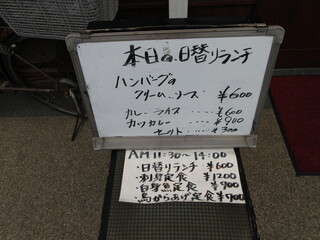 本日の日替りランチ
ハンバーグの
クリームソース ¥600
カレーライス ・・・・ ¥600
カツカレー ・・・・・ ¥900
セット ・・・・ ¥300
AM11:30~14:00
・日替りランチ ¥600
・刺身定食 ¥1200
・白身魚定食 ¥900
・鳥からあげ定食 ¥900